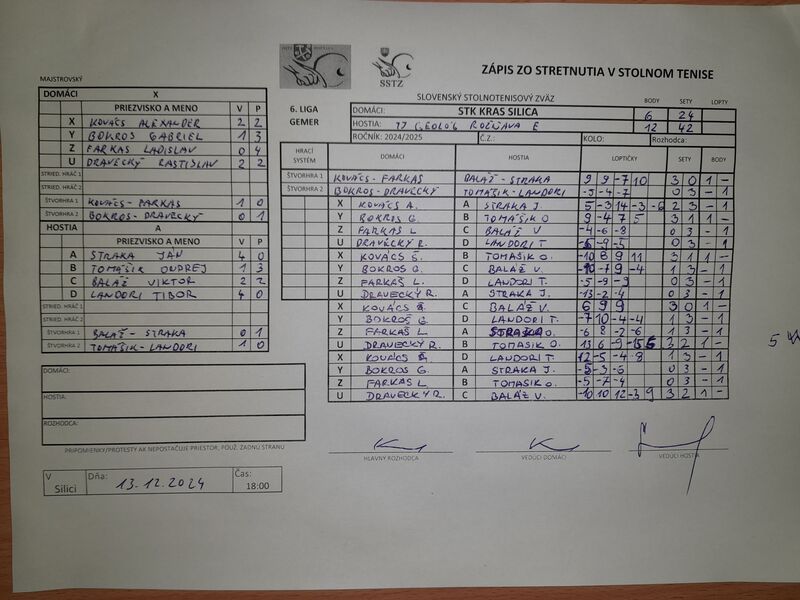 SSTZ
ZÁPIS ZO STRETNUTIA V STOLNOM TENISE
SLOVENSKÝ STOLNOTENISOVÝ ZVÄZ
BODY SETY LOPTY
6. LIGA GEMER
DOMÁCI: STK KRAS SILICA 6 24
HOSTIA: TJ GEOLÓG ROŽŇAVA E 12 42
ROČNÍK: 2024/2025 Č.Z.: KOLO: Rozhodca:
MAJSTROVSKÝ
DOMÁCI X
PRIEZVISKO A MENO V P
X KOVÁCS ALEXANDER 2 2
Y BOKROS GABRIEL 1 3
Z FARKAS LADISLAV 0 4
U DRAVECKÝ RASTISLAV 2 2
STRIED. HRÁČ 1
STRIED. HRÁČ 2
ŠTVORHRA 1 KOVÁCS - FARKAS 1 0
ŠTVORHRA 2 BOKROS - DRAVECKÝ 0 1
HOSTIA A
PRIEZVISKO A MENO V P
A STRAKA JÁN 4 0
B TOMÁŠIK ONDREJ 1 3
C BALÁŽ VIKTOR 2 2
D LANDORI TIBOR 4 0
STRIED. HRÁČ 1
STRIED. HRÁČ 2
ŠTVORHRA 1 BALÁŽ - STRAKA 0 1
ŠTVORHRA 2 TOMÁŠIK - LANDORI 1 0
DOMÁCI:
HOSTIA:
ROZHODCA:
PRIPOMIENKY/PROTESTY AK NEPOSTAČUJE PRIESTOR, POUŽ. ZADNÚ STRANU
V Silici
Dňa: 13.12.2024
Čas: 18:00
HRACÍ SYSTÉM DOMÁCI HOSTIA LOPTIČKY SETY BODY
ŠTVORHRA 1 KOVÁCS - FARKAS BALÁŽ - STRAKA 9 9 -7 10 3 0 1 -
ŠTVORHRA 2 BOKROS - DRAVECKÝ TOMÁŠIK - LANDORI -4 -7 0 3 - 1
X KOVÁCS A. A STRAKA J. 5 -3 14 -3 -6 2 3 - 1
Y BOKROS G. B TOMÁŠIK O 9 -4 7 5 3 1 1 -
Z FARKAS L. C BALÁŽ V -4 -6 -8 0 3 - 1
U DRAVECKÝ R. D LANDORI T. -6 -9 -5 0 3 - 1
X KOVÁCS B TOMÁŠIK O. -10 8 9 11 3 1 1 -
Y BOKROS G. C BALÁŽ V. -10 -7 9 -4 1 3 - 1
Z FARKAŠ L. D LANDORI T. -5 -9 0 3 - 1
U DRAVECKÝ R. A STRAKA J. -13 -2 -4 0 3 - 1
X KOVÁCS C BALÁŽ V. 6 9 9 3 0 1 -
Y BOKROS G. D LANDORI T. -7 10 -4 -4 1 3 - 1
Z FARKAŠ L. A STRAKA -6 8 -2 -6 1 3 - 1
U DRAVECKÝ R. B TOMASIK O. 13 6 -9 -15 3 2 1 -
X KOVÁCS D LANDORI T. 12 -5 -4 -8 1 3 - 1
Y BOKROS G. A STRAKA J. -5 -3 -6 0 3 - 1
Z FARKAS L B TOMASIK O. -5 -7 -4 0 3 - 1
U DRAVECKÝ R. C BALÁŽ V. -10 10 12 -3 9 3 2 1 -
5
HLAVNÝ ROZHODCA
VEDÚCI DOMÁCI
VEDÚCI HOSTIA